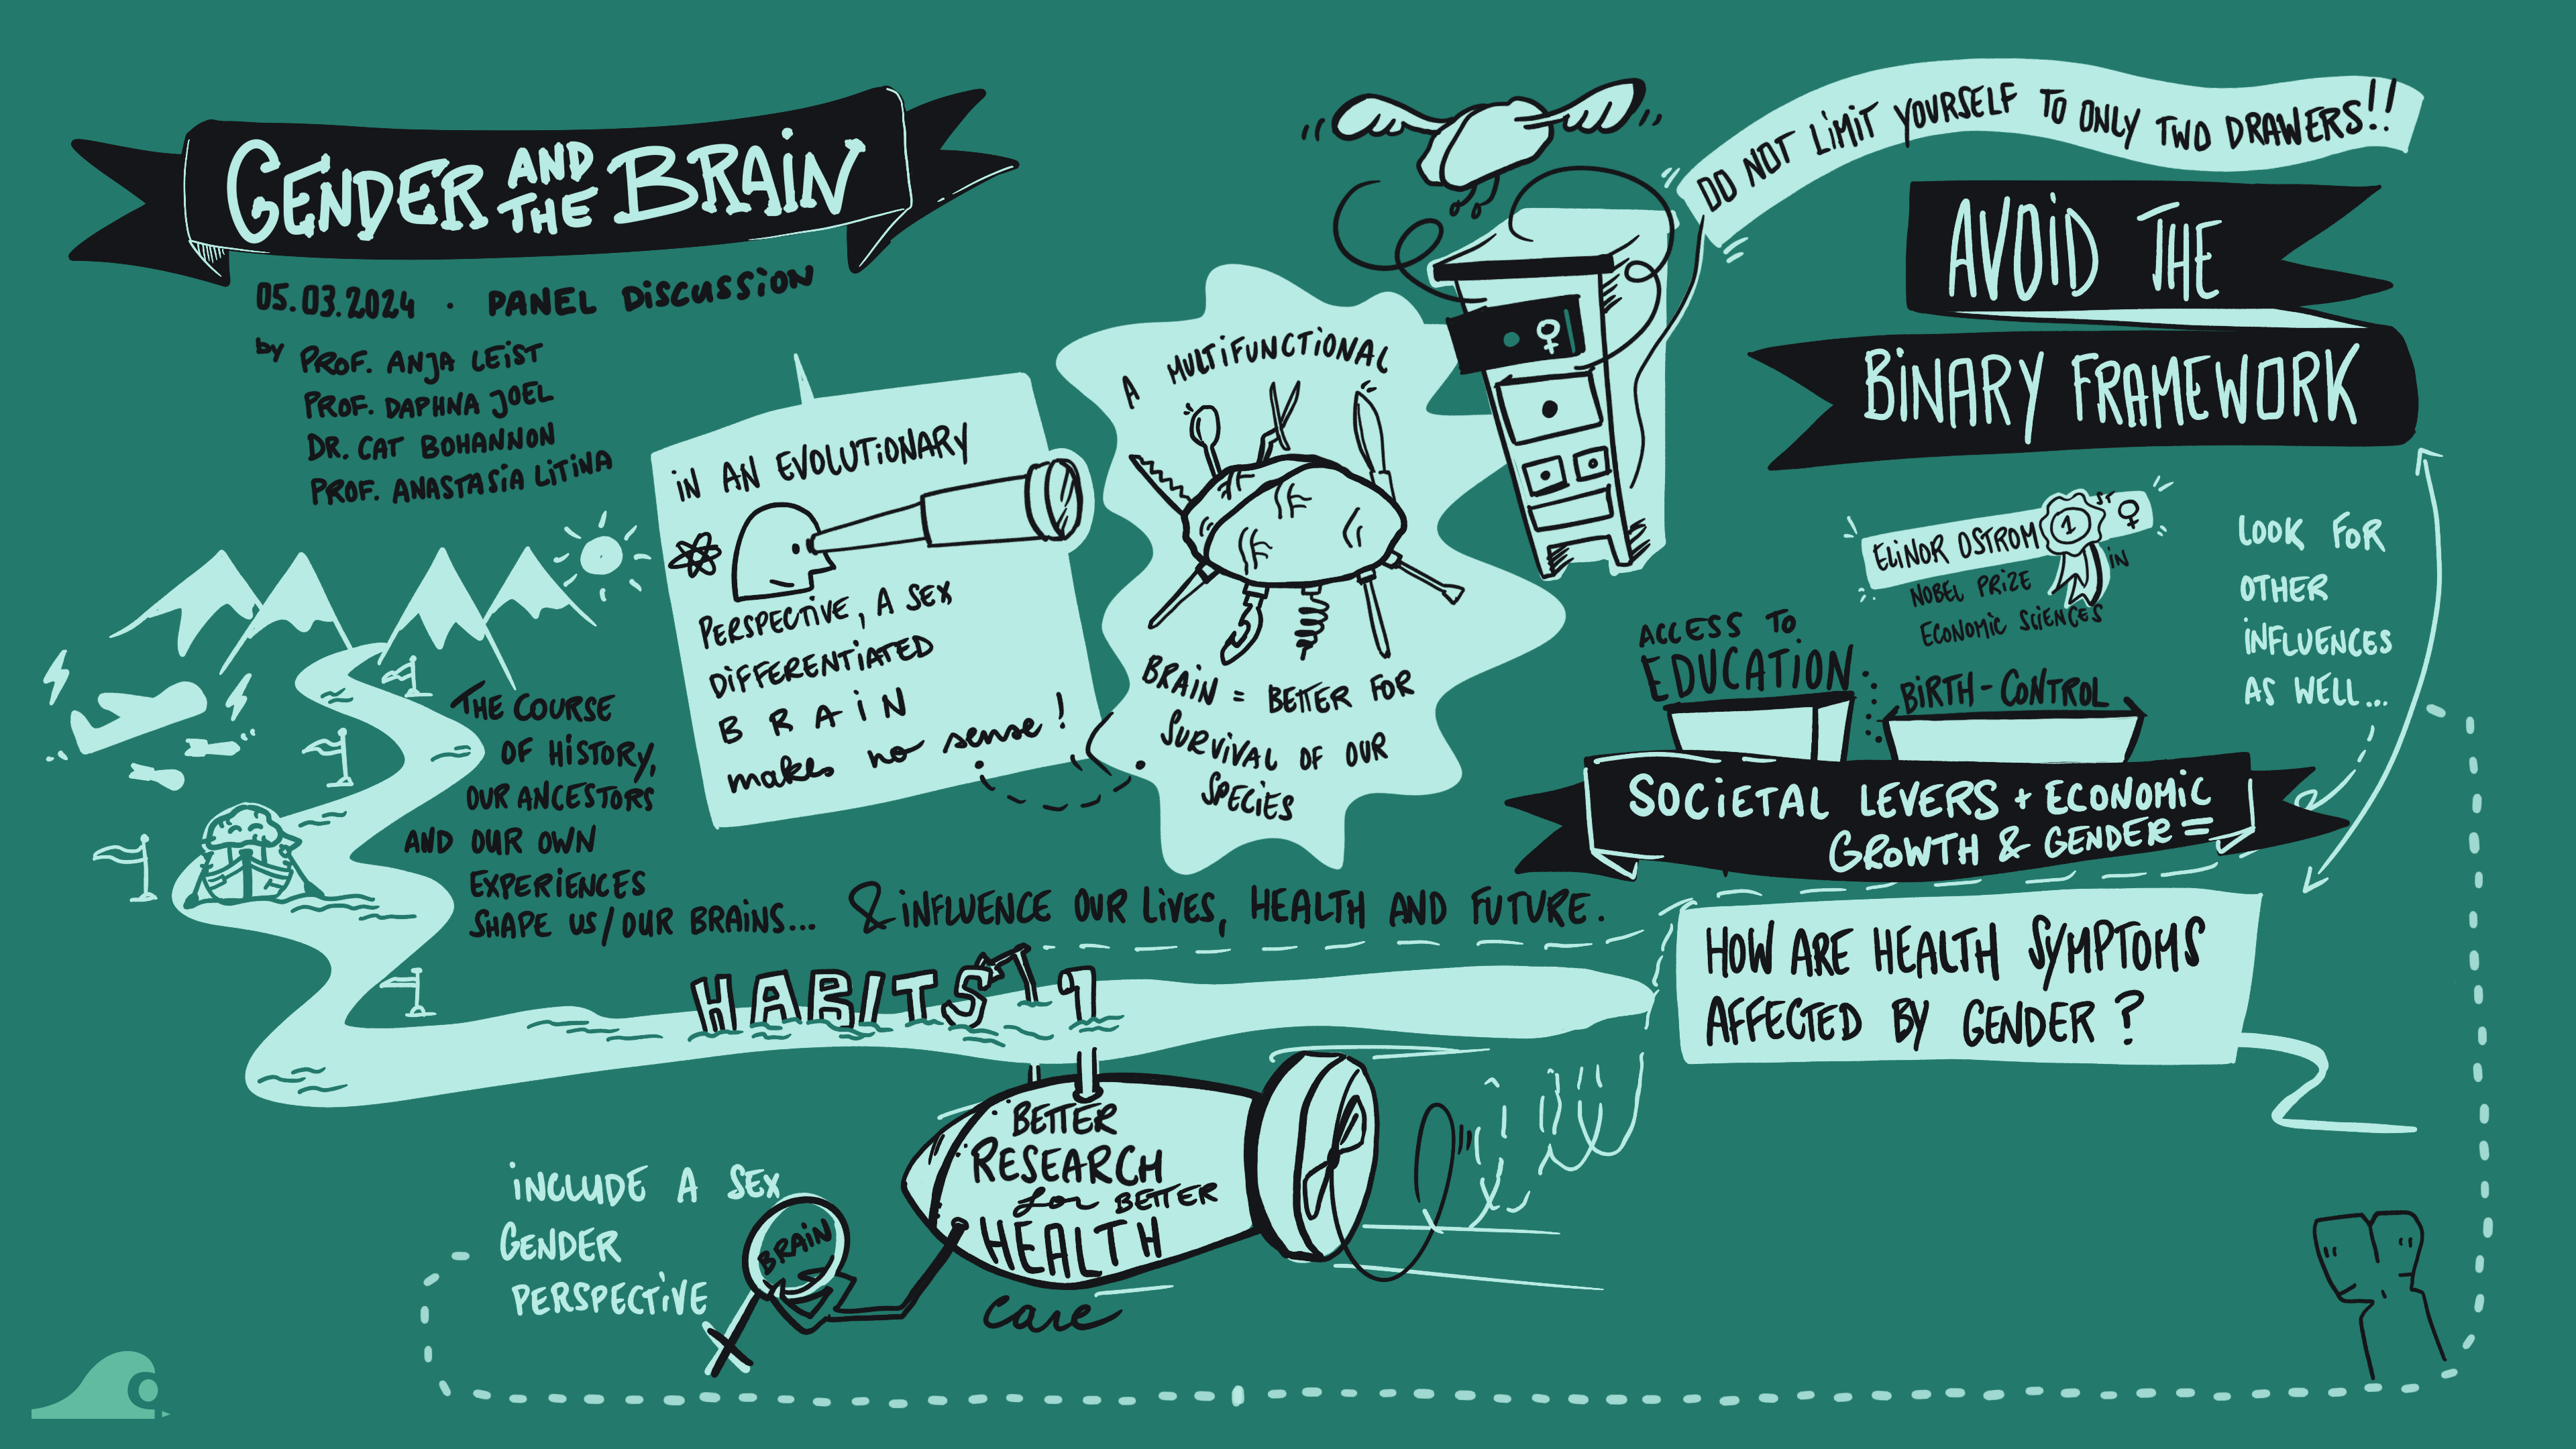 GENDER AND THE BRAIN
05.03.2024 · PANEL DISCUSSION
by PROF. ANJA LEIST
PROF. DAPHNA JOEL
DR. CAT BOHANNON
PROF. ANASTASIA LITINA
IN AN EVOLUTIONARY
PERSPECTIVE, A SEX
DIFFERENTIATED
BRAIN
makes no sense!
A MULTIFUNCTIONAL
BRAIN = BETTER FOR
SURVIVAL OF OUR
SPECIES
DO NOT LIMIT YOURSELF TO ONLY TWO DRAWERS!!
♀
AVOID THE
BINARY FRAMEWORK
ELINOR OSTROM 1ST ♀ IN
NOBEL PRIZE
ECONOMIC SCIENCES
LOOK FOR
OTHER
INFLUENCES
AS WELL...
ACCESS TO
EDUCATION
BIRTH-CONTROL
SOCIETAL LEVERS + ECONOMIC
GROWTH & GENDER =
HOW ARE HEALTH SYMPTOMS
AFFECTED BY GENDER?
THE COURSE
OF HISTORY,
OUR ANCESTORS
AND OUR OWN
EXPERIENCES
SHAPE US/OUR BRAINS... & INFLUENCE OUR LIVES, HEALTH AND FUTURE.
HABITS
BETTER
RESEARCH
for BETTER
HEALTH
care
INCLUDE A SEX
GENDER
PERSPECTIVE
BRAIN